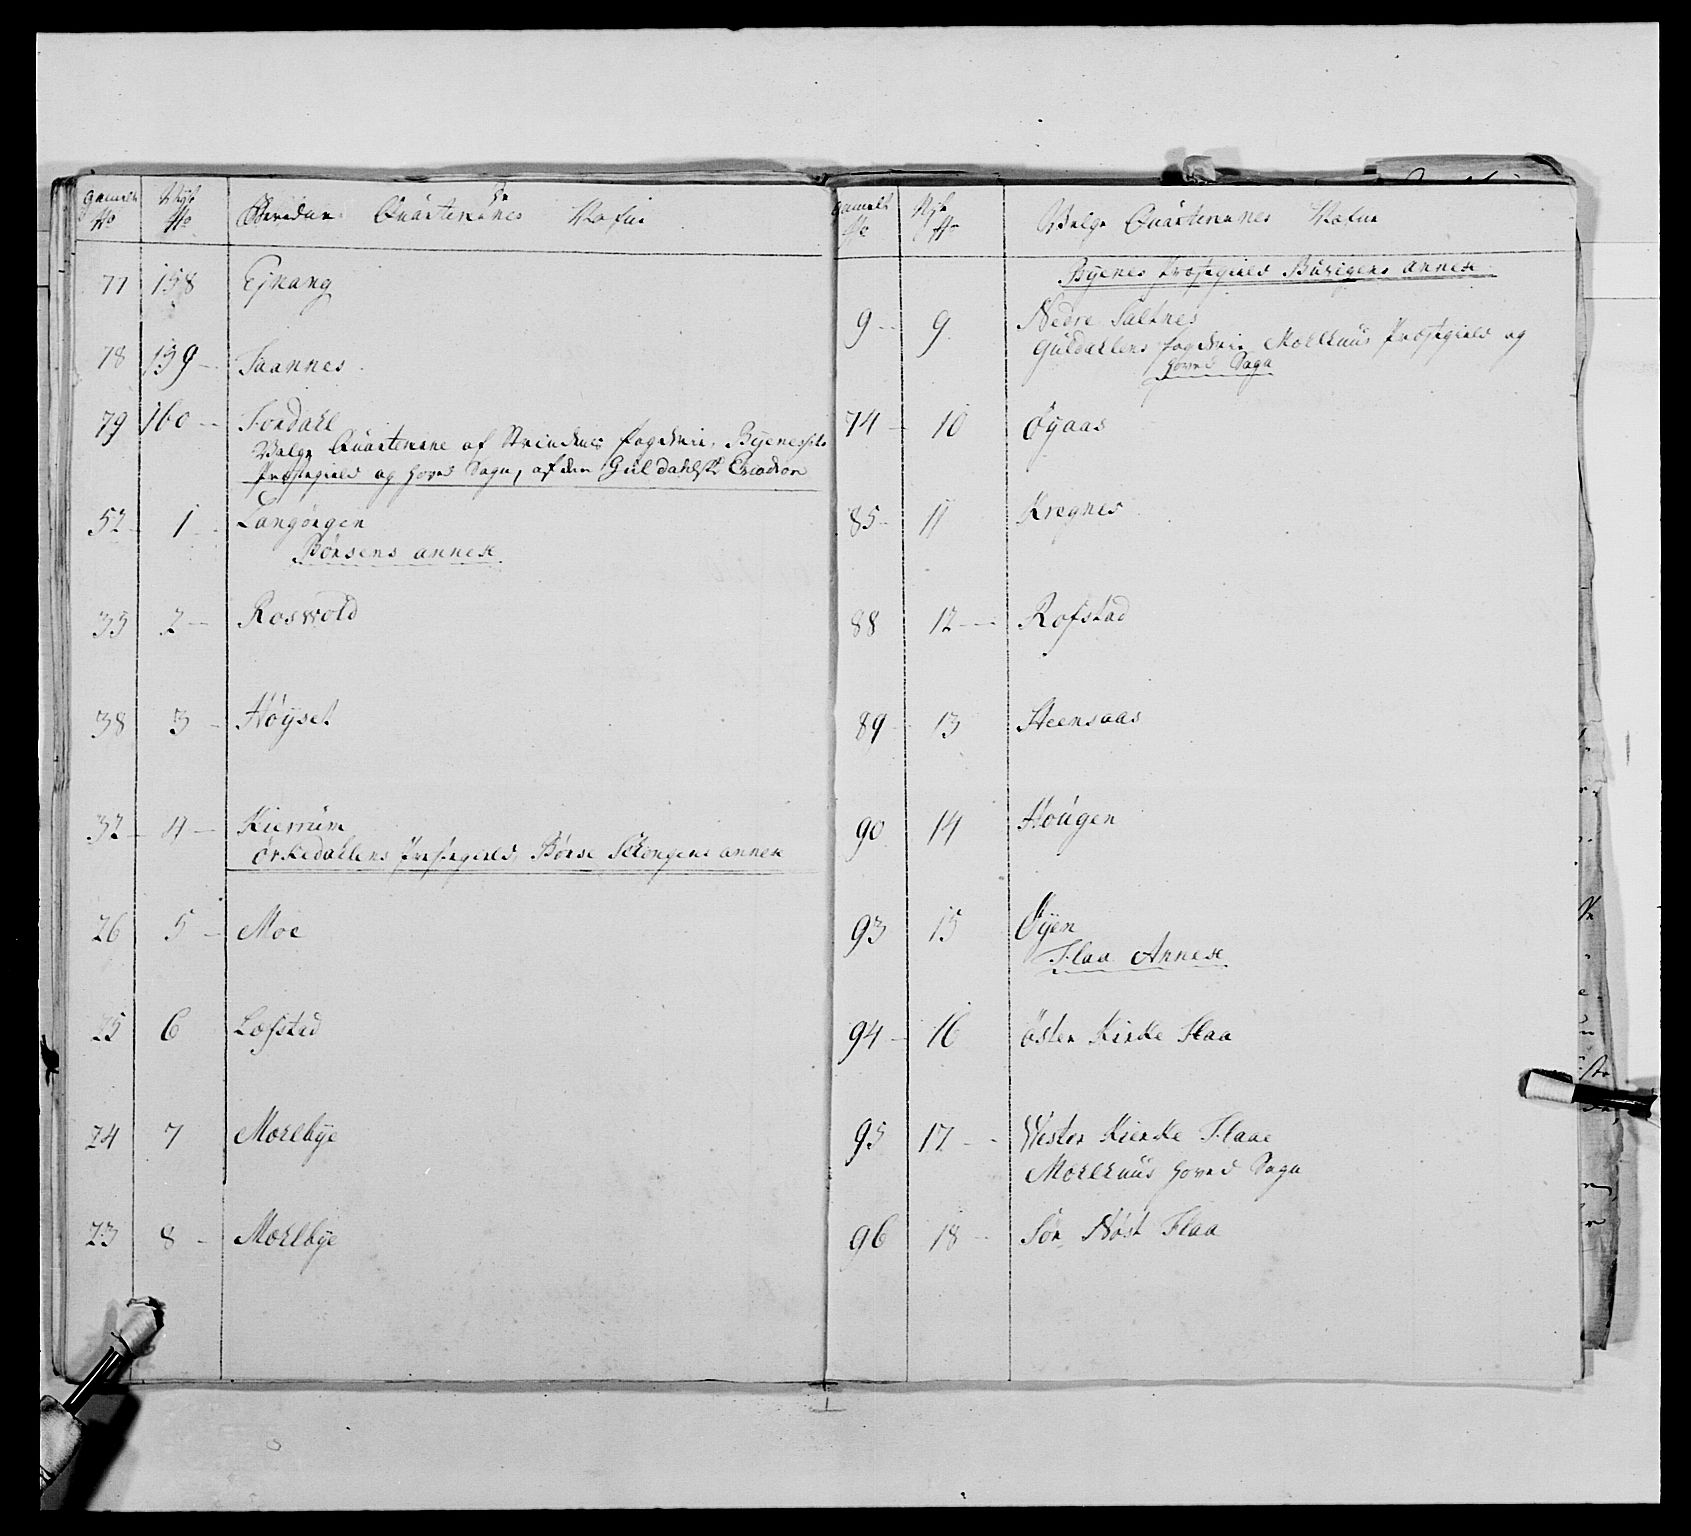 gamelt No | Nye No | Quarterenes Nafne
77 158 Ejnang
78 159 Saannes
79 160 Fordahl
Walge Quarterene af Strindens fogderie, Byenessets
Præstegield og Hoved Sogn, af den Guldahlske Esqvadron
52 1 Langørgen
Børsens annex
35 2 Roswold
38 3 Høÿset
32 4 Kierrum
Ørkedahlens Præstegield, Børse Schongens annex
26 5 Moe
25 6 Lofstad
24 7 Moelbÿe
23 8 Moelbÿe
gamelt No | Nye No | Walge Quarterenes Nafne
Byenes Præstegield Buvigens annex
9 9 Nedre Saltnes
Guldahlens fogderie Moelhuus Præstegield og
Hoved Sogn
74 10 Øÿaas
85 11 Kregnes
88 12 Rofstad
89 13 Steensaas
90 14 Hougen
93 15 Øÿen
Flaa Annex
94 16 Øster Kirke Flaa
95 17 Wester Kierke Flaae
Moelhuus Hoved Sogn
96 18 Sør Nøst Flaa